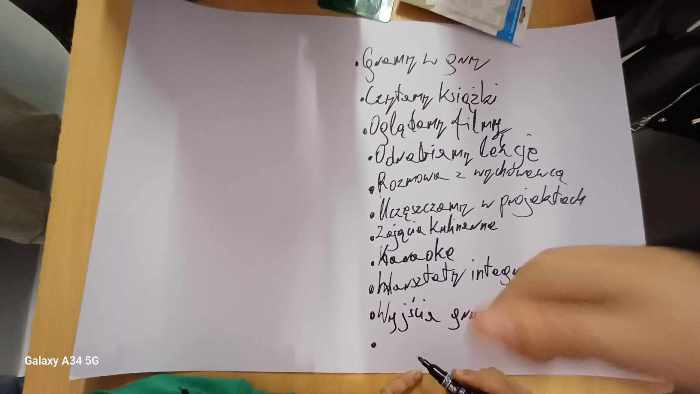 • Gramy w gry
• Czytamy książki
• Oglądamy filmy
• Odrabiamy lekcje
• Rozmowa z wychowawcą
• Uczęszczamy w projektach
• Zajęcia kulinarne
• Karaoke
• Warsztaty integ
• Wyjścia gru
•
Galaxy A34 5G